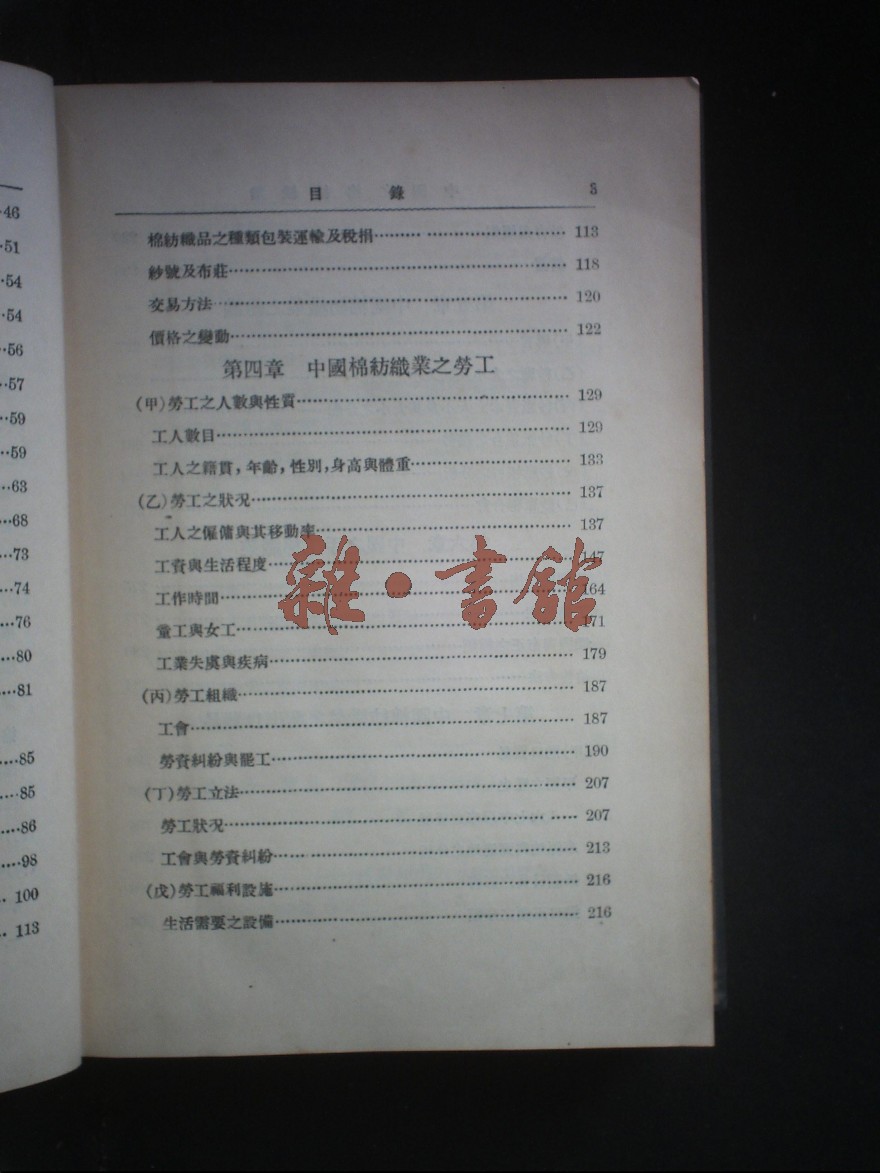 46
51
54
54
56
57
59
59
63
68
73
74
76
80
81
85
85
86
98
100
113
目錄 3
棉紡織品之種類包裝運輸及稅捐 113
紗號及布莊 118
交易方法 120
價格之變動 122
第四章 中國棉紡織業之勞工
(甲)勞工之人數與性質 129
工人數目 129
工人之籍貫,年齡,性別,身高與體重 133
(乙)勞工之狀况 137
工人之僱傭與其移動率 137
工資與生活程度 147
工作時間 164
童工與女工 171
工業失虞與疾病 179
(丙)勞工組織 187
工會 187
勞資糾紛與罷工 190
(丁)勞工立法 207
勞工狀况 207
工會與勞資糾紛 213
(戊)勞工福利設施 216
生活需要之設備 216
雜·書館